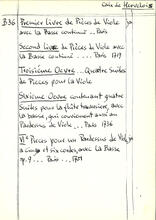 Caix de Hervelois
B36 Premier Livre de Pièces de Viole
avec la Basse continue .. Paris
Second Livre de Pièces de Viole
avec la Basse continue .... Paris 1719
Troisième Oeuvre ... Quatre Suites
de Pieces pour la Viole
Sixième Oeuvre contenant quatre
Suites pour la flûte traversière, avec
la basse, qui conviennent aussi au
Pardessus de Viole ... Paris 1736
VIe Pièces pour un Pardessus de Viole
à cinq et six cordes, avec la Basse
Paris ... 1751